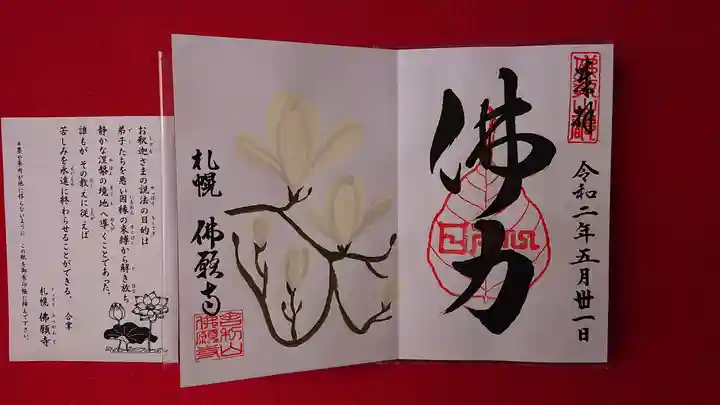 来拝
佛力
令和二年五月卅一日
札幌 佛願寺
お釈迦さまの説法の目的は
弟子たちを悪い因縁の束縛から解き放ち
静かな涅槃の境地へ導くことであった、
誰もが その教えに従えば
苦しみを永遠に終わらせることができる。 合掌
札幌 佛願寺